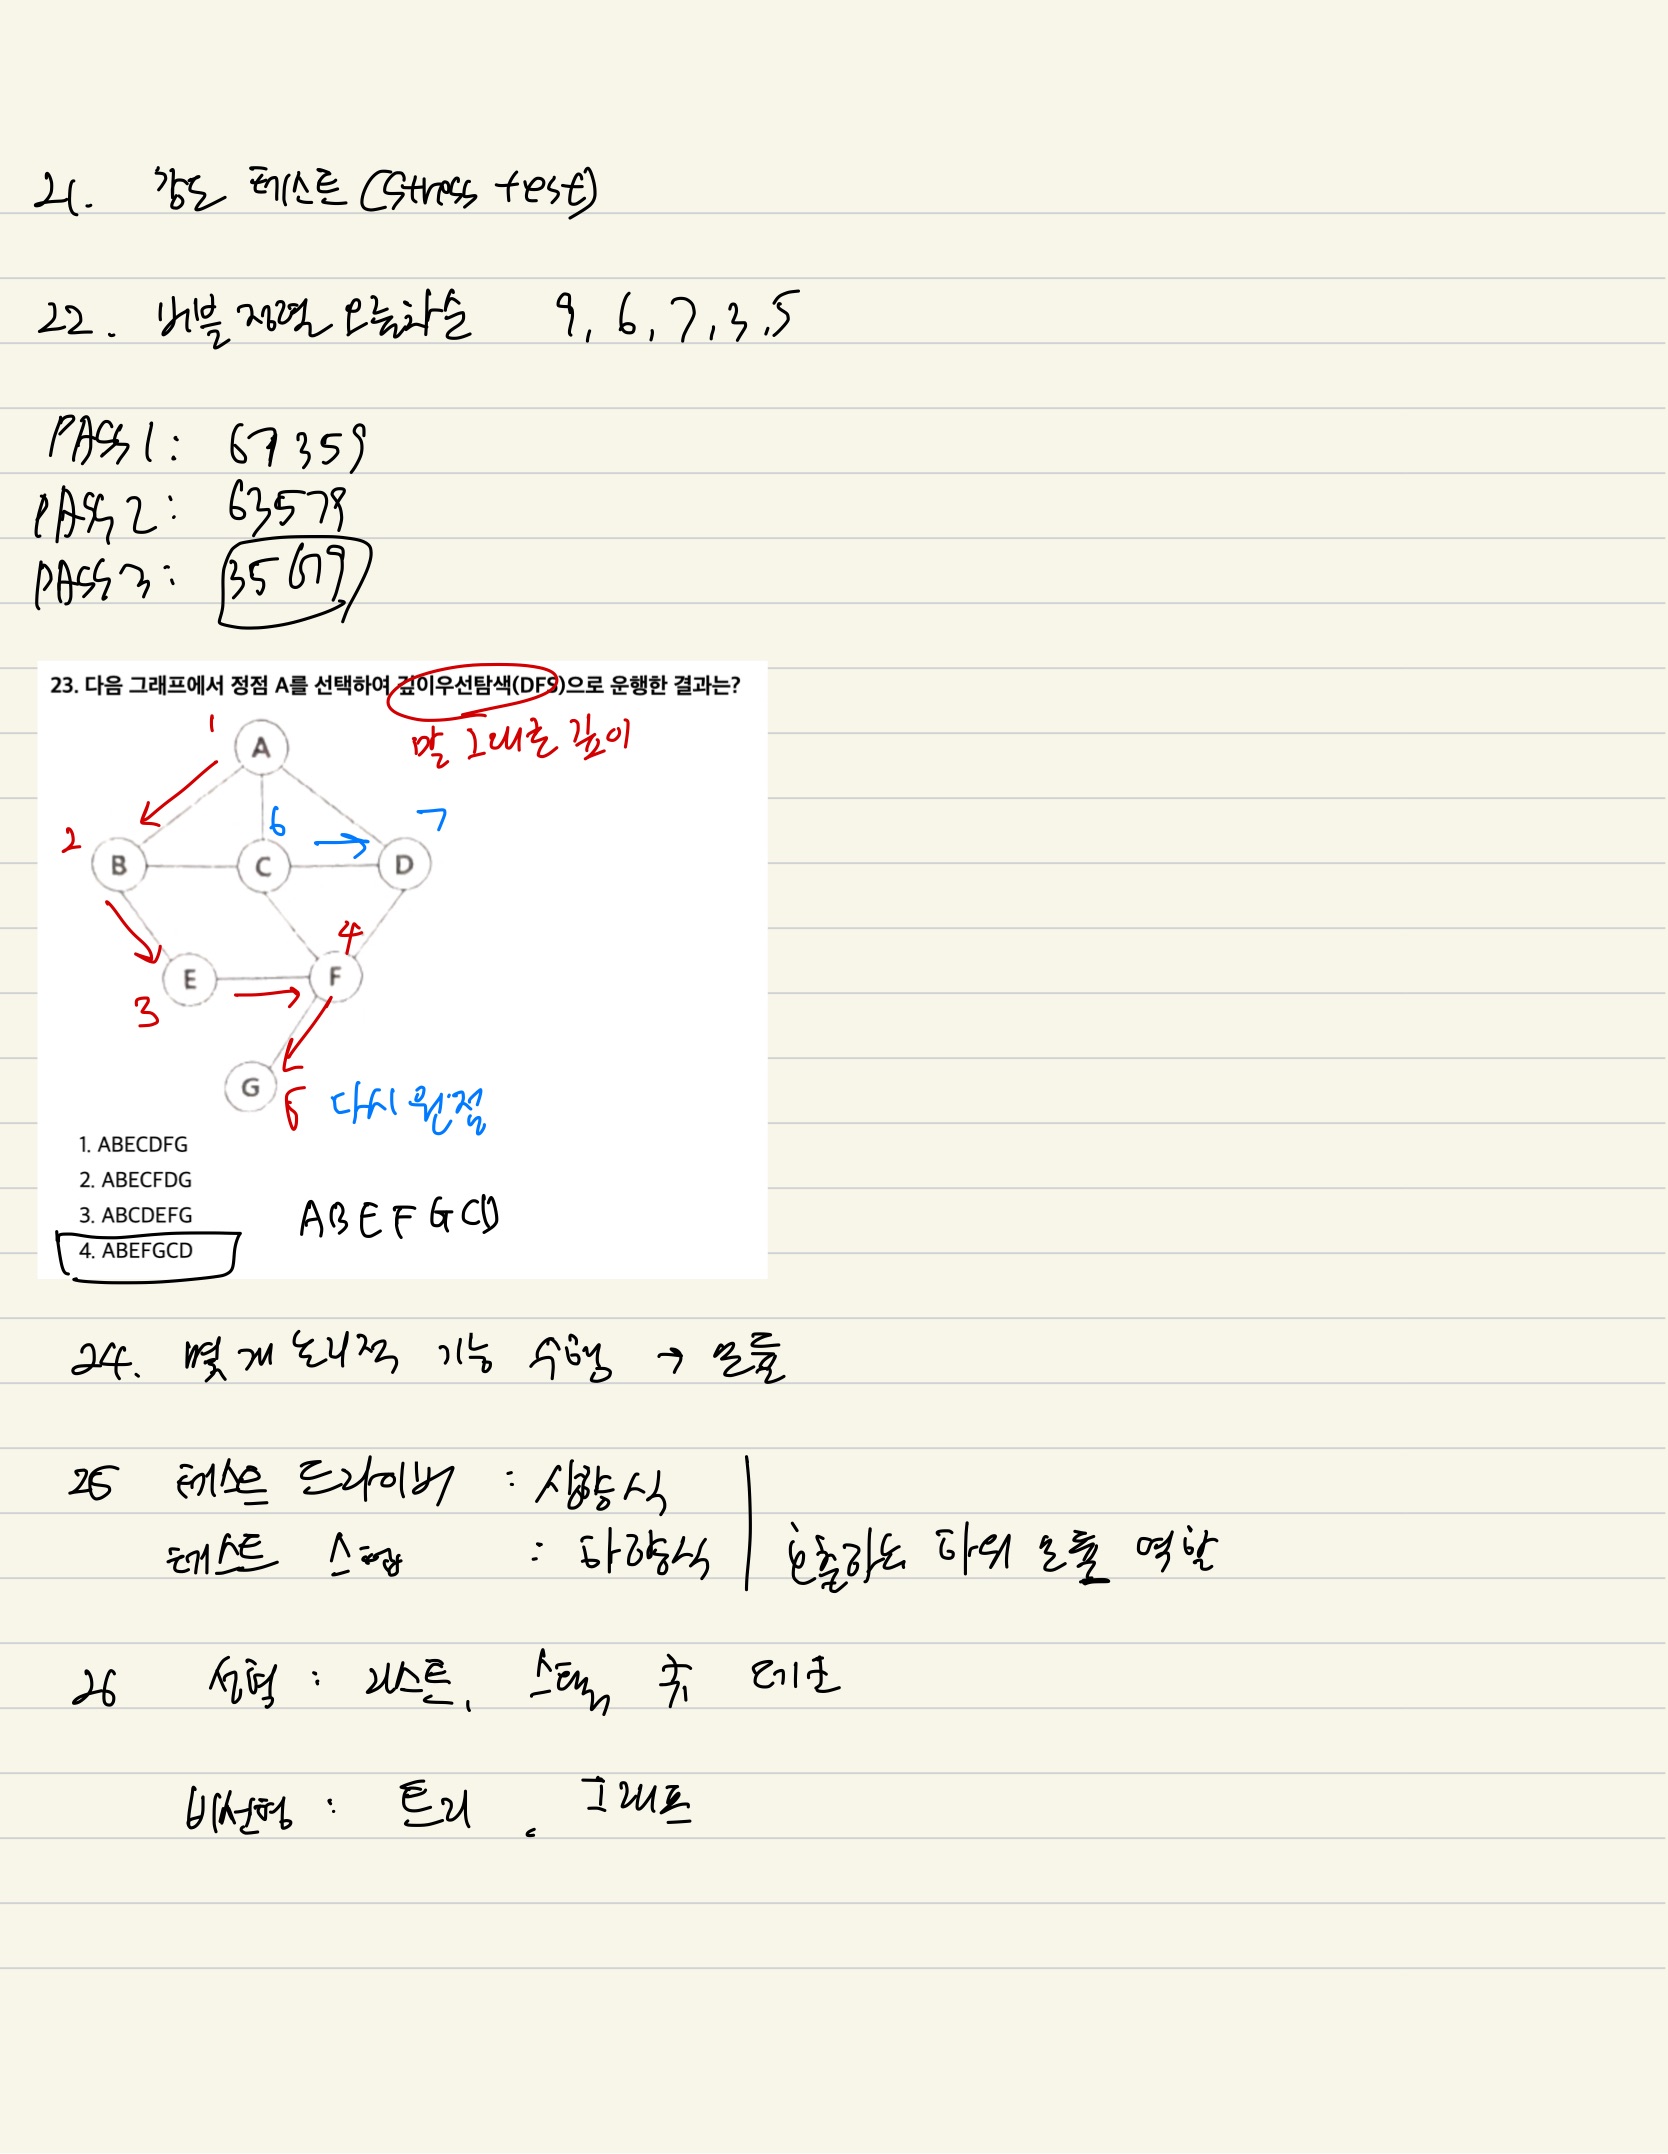 21. 강도 테스트 (Stress test)
22. 버블 정렬 오름차순 9, 6, 7, 3, 5
PASS 1: 67359
PASS 2: 63579
PASS 3: 35679
23. 다음 그래프에서 정점 A를 선택하여 깊이우선탐색(DFS)으로 운행한 결과는?
말 그대로 깊이
1
A
6
7
2
B
C
D
4
E
F
3
G
5 다시 원점
1. ABECDFG
2. ABECFDG
3. ABCDEFG
4. ABEFGCD
ABEFGCD
24. 몇 개 논리적 기능 수행 → 모듈
25 테스트 드라이버 : 상향식
테스트 스텁 : 하향식 호출하는 하위 모듈 역할
26 선형 : 리스트, 스택, 큐, 데크
비선형 : 트리, 그래프